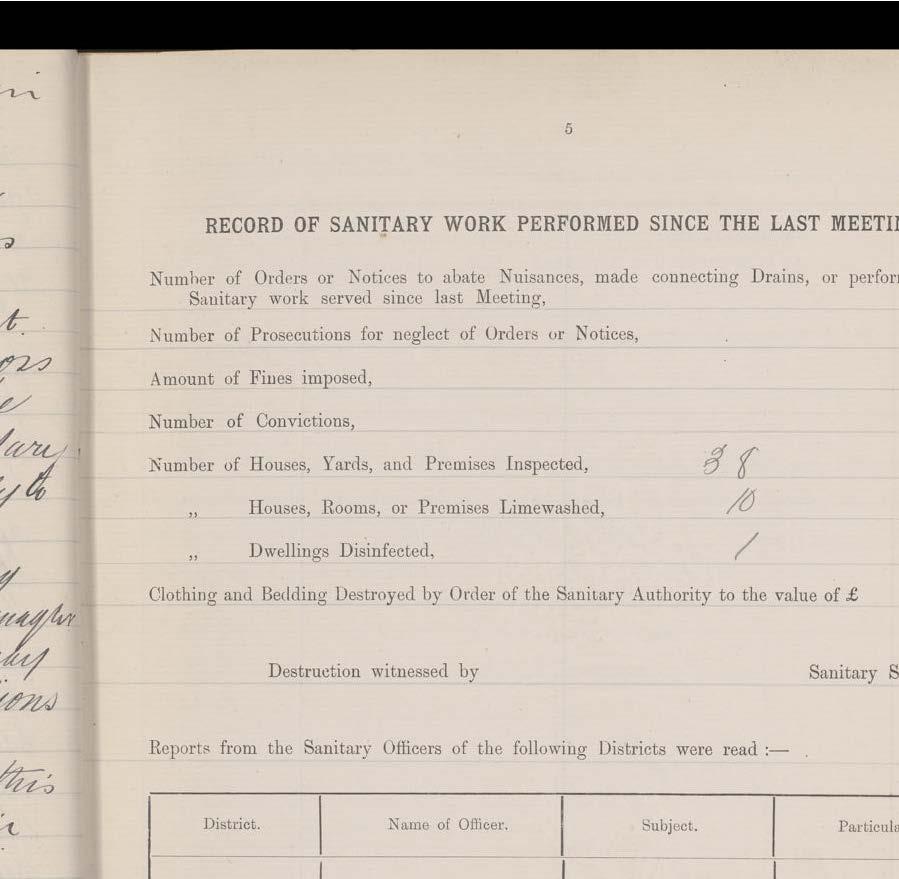 in
s
t.
ors
e
y to
ions
this
5
RECORD OF SANITARY WORK PERFORMED SINCE THE LAST
Number of Orders or Notices to abate Nuisances, made connecting Drains, or
Sanitary work served since last Meeting,
Number of Prosecutions for neglect of Orders or Notices,
Amount of Fines imposed,
Number of Convictions,
Number of Houses, Yards, and Premises Inspected, 38
„ Houses, Rooms, or Premises Limewashed, 10
„ Dwellings Disinfected, 1
Clothing and Bedding Destroyed by Order of the Sanitary Authority to the value of £
Destruction witnessed by Sanitary S
Reports from the Sanitary Officers of the following Districts were read :—
District. Name of Officer. Subject. Particula